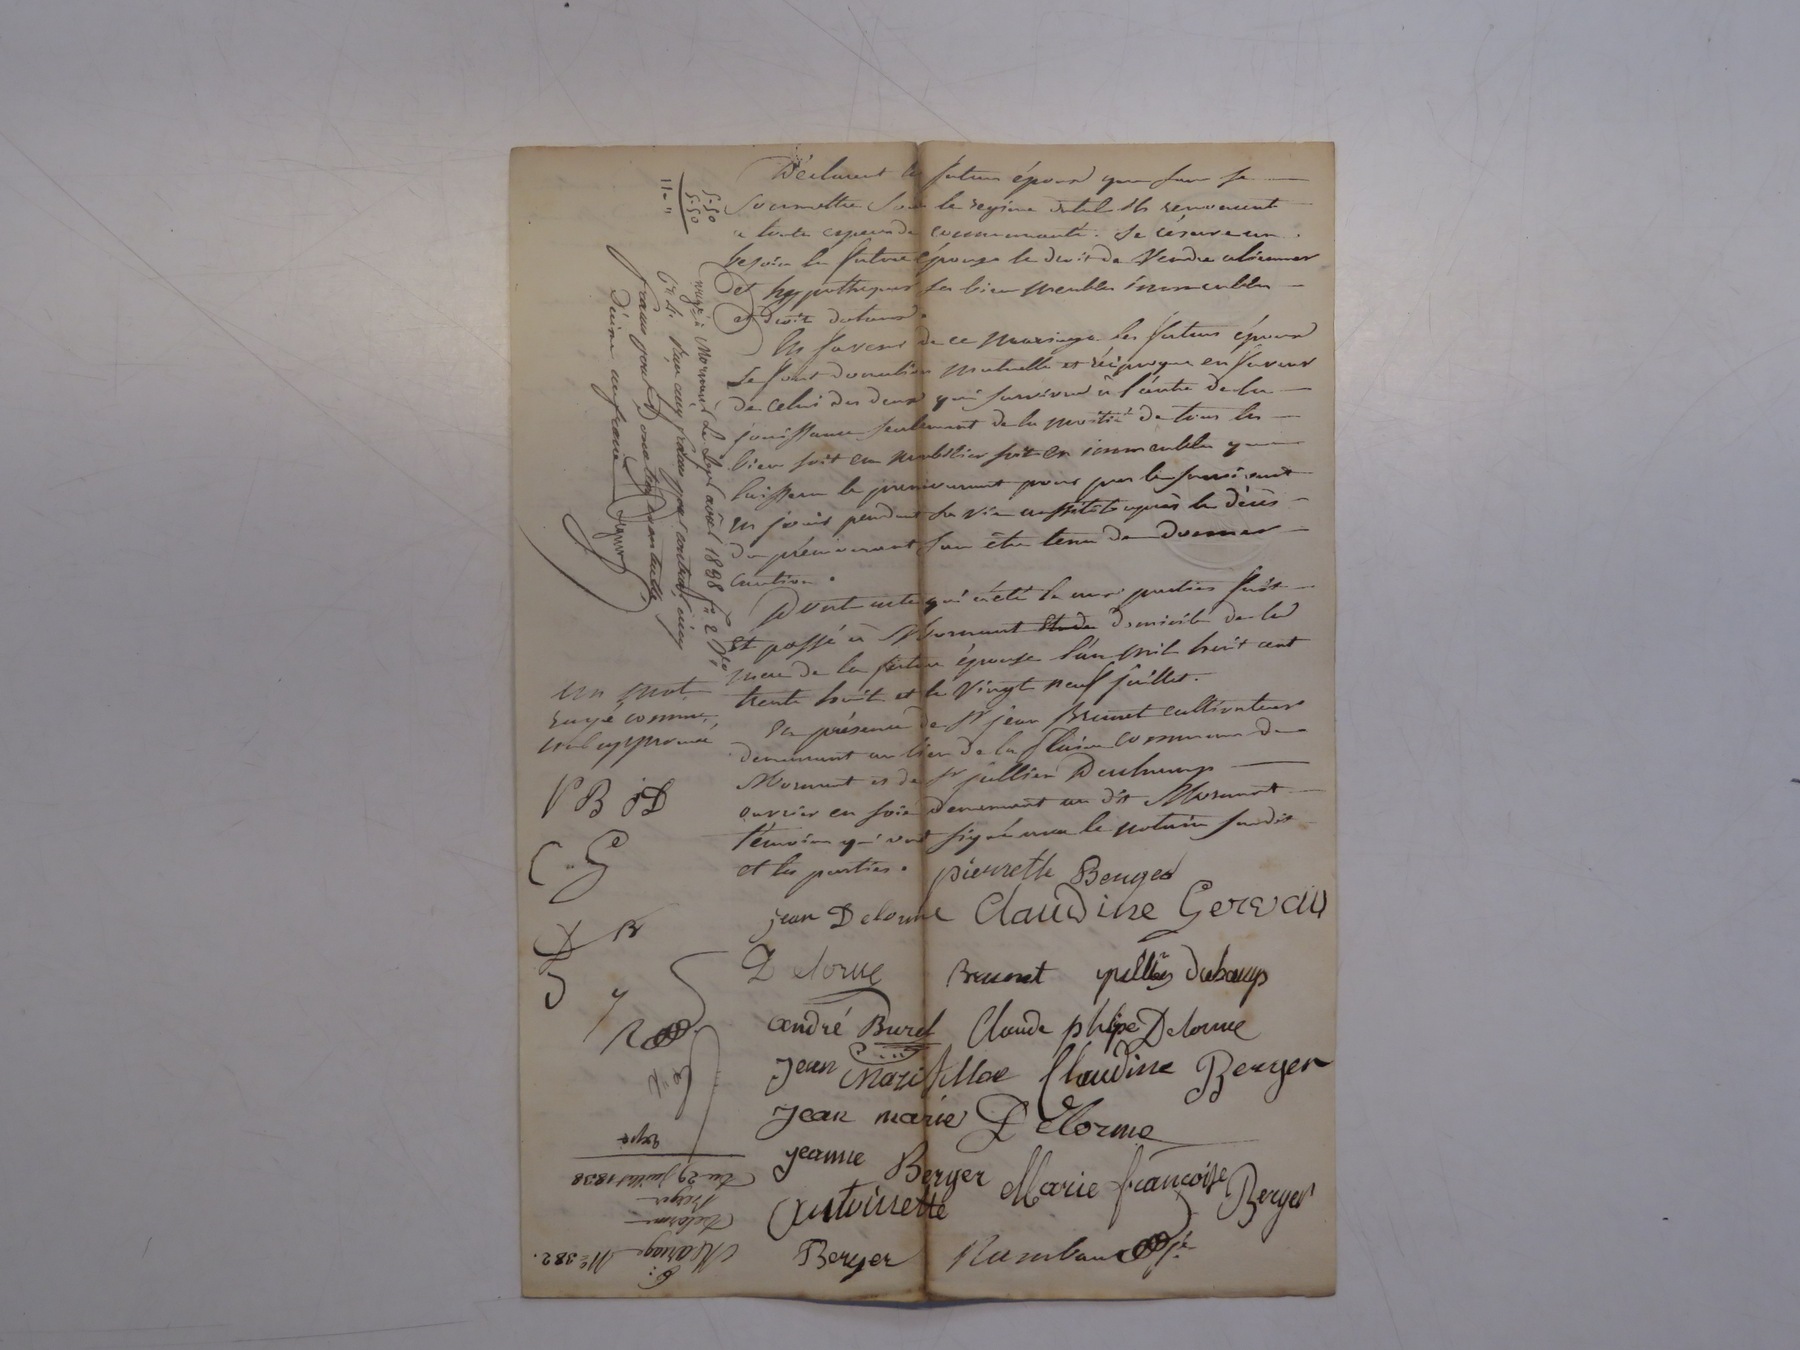 Déclarent les futurs époux que sans se
soumettre sous le regime dotal ils renoncent
a toute espece de communauté. Se réserve au
besoin la future épouse le droit de Vendre aliener
et hypothequer ses biens meubles immeubles
et droits dotaux.
En faveur de ce mariage les futurs époux
se font donation mutuelle et réciproque en faveur
de celui des deux qui survivra à l'autre de la
jouissance seulement de la moitié de tous les
biens soit en mobilier soit en immeubles que
laissera le premourant pour par le survivant
en jouir pendant sa vie aussitôt après le décès
du prémourant sans être tenu de donner
caution.
Dont acte qui a été lu aux parties fait
et passé à Mornant domicile de la
mere de la future épouse l'an mil huit cent
trente huit et le vingt neuf juillet.
En présence de Sr jean Brunet cultivateur
demeurant au lieu de la plaine commune de
Mornant et de Sr jullien Deschamps
ouvrier en soie demeurant au dit Mornant
témoins qui ont signé avec le notaire susdit
et les parties. pierrette Berger
jean Delorme Claudine Gerevau
Delorme Brunet jullien
andré Burel Claude phlpe Delorme
jean Claudine Berger
jean marie Delorme
jeanne Berger Marie françoise Berger
antoinette
Berger Rambaud
5-50
5-50
11-"
à Mornant Le août 1838 fo 2
Rçu cinq francs pour contrat, cinq
francs pour Donation mutuelle
décime un franc
Un mot
rayé comme
nul approuvé
P B J D
C. G
D B
B
Mariage No 382.
Delorme
Berger
Du 29 juillet 1838